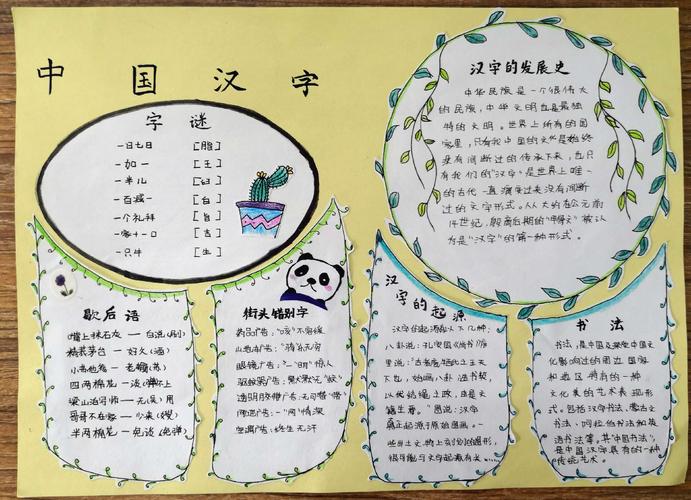 中国汉字
字谜
一日七日 [脂]
一加一 [王]
一半儿 [臼]
一百减一 [白]
一个礼拜 [旨]
一家十一口 [吉]
一只牛 [生]
汉字的发展史
中华民族是一个很伟大
的民族，中华文明也是最独
特的文明。世界上所有的国
家里，只有我中国的文化是始终
没有间断过的传承下来，也只
有我们的“汉字”是世界上唯一
的古代一直演变过来没有间断
过的文字形式。从大约在公元前
14世纪，殷商后期的“甲骨文”被认
为是“汉字”的第一种形式。
歇后语
墙上抹石灰——白说(刷)
精装茅台——好久(酒)
四两棉花——谈(弹)不上
梁山泊军师——无(吴)用
哥哥不在家——少来(嫂)
半两棉花——免谈(免弹)
街头错别字
药品广告：“咳”不容缓
山地车广告：“骑”乐无穷
眼镜广告：一“明”惊人
驱蚊器广告：默默无“蚊”
透明胶带广告：无可“带”
网吧广告：一“网”情深
空调广告：终生无汗
汉字的起源
汉字的起源有以下几种：
八卦说：孔安国《尚书》序
里说：“古者庖牺氏之王天
下也，始画八卦，造书契，
以代结绳之政，由是文
籍生焉。”图说：汉字
真正起源于原始图画。一
些出土文物上刻划的图形，
很可能与文字起源有关
书法
书法，是中国及深受中国文
化影响过的周边国家
和地区特有的一种
文化美的艺术表现形
式。包括汉字书法、蒙古文
书法、阿拉伯书法和英
语书法等。其“中国书法”，
是中国汉字具有的一种
传统艺术。